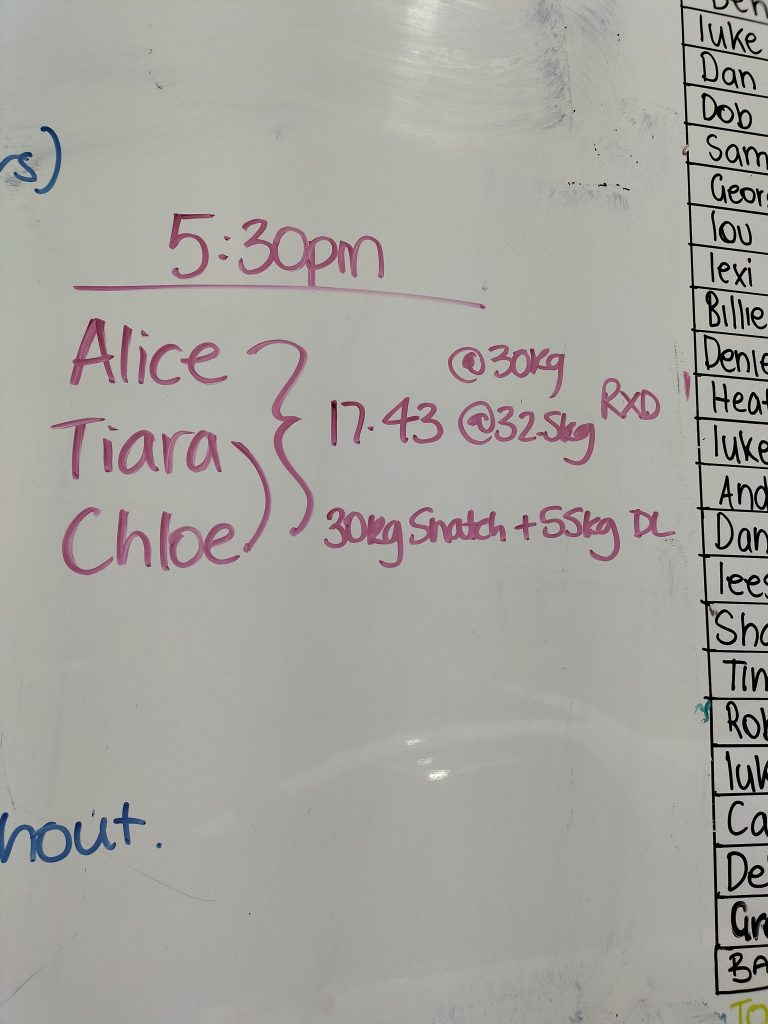 rs)
5:30pm
Alice @30kg
Tiara 17.43 @32.5kg RXD
Chloe 30kg Snatch + 55kg DL
hout.
luke
Dan
Dob
Sam
Geor
lou
lexi
Billie
Denie
Heat
luke
And
Dan
lees
Sha
Tin
Rob
luk
Ca
De
Gr
BA
TO